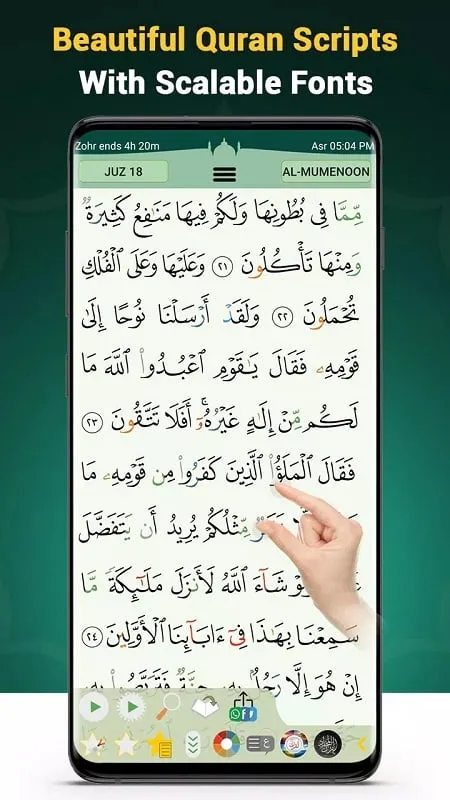 Beautiful Quran Scripts
With Scalable Fonts
Zohr ends 4h 20m Asr 05:04 PM
JUZ 18 AL-MUMENOON
مِّمَّا فِى بُطُونِهَا وَلَكُمْ فِيهَا مَنَـٰفِعُ كَثِيرَةٌ
وَمِنْهَا تَأْكُلُونَ ٢١ وَعَلَيْهَا وَعَلَى ٱلْفُلْكِ
تُحْمَلُونَ ٢٢ وَلَقَدْ أَرْسَلْنَا نُوحًا إِلَىٰ
قَوْمِهِۦ فَقَالَ يَـٰقَوْمِ ٱعْبُدُوا۟ ٱللَّهَ مَا
لَكُم مِّنْ إِلَـٰهٍ غَيْرُهُۥٓ ۚ أَفَلَا تَتَّقُونَ ٢٣
فَقَالَ ٱلْمَلَؤُا۟ ٱلَّذِينَ كَفَرُوا۟ مِن قَوْمِهِۦ مَا
مِّثْلُكُمْ يُرِيدُ أَن يَتَفَضَّلَ
شَآءَ ٱللَّهُ لَأَنزَلَ مَلَـٰٓئِكَةً مَّا
سَمِعْنَا بِهَـٰذَا فِىٓ ءَابَآئِنَا ٱلْأَوَّلِينَ ٢٤
إِنْ هُوَ إِلَّا رَجُلٌۢ